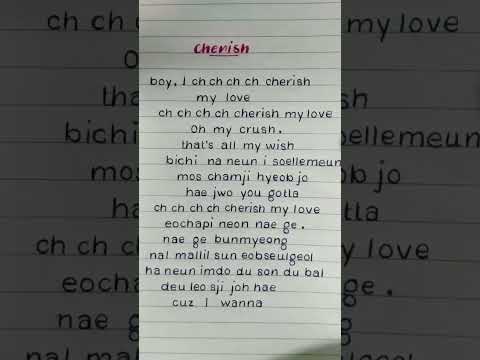 cherish
boy. I ch ch ch ch cherish
my love
ch ch ch ch cherish my love
Oh my crush.
that's all my wish
bichi na neun i soellemeun
mos chamji hyeob jo
hae jwo you gotta
ch ch ch ch cherish my love
eochapi neon nae ge.
nae ge bunmyeong
nal mallil sun eobseulgeol
ha neun imdo du son du bal
deu leo sji joh hae
cuz I wanna